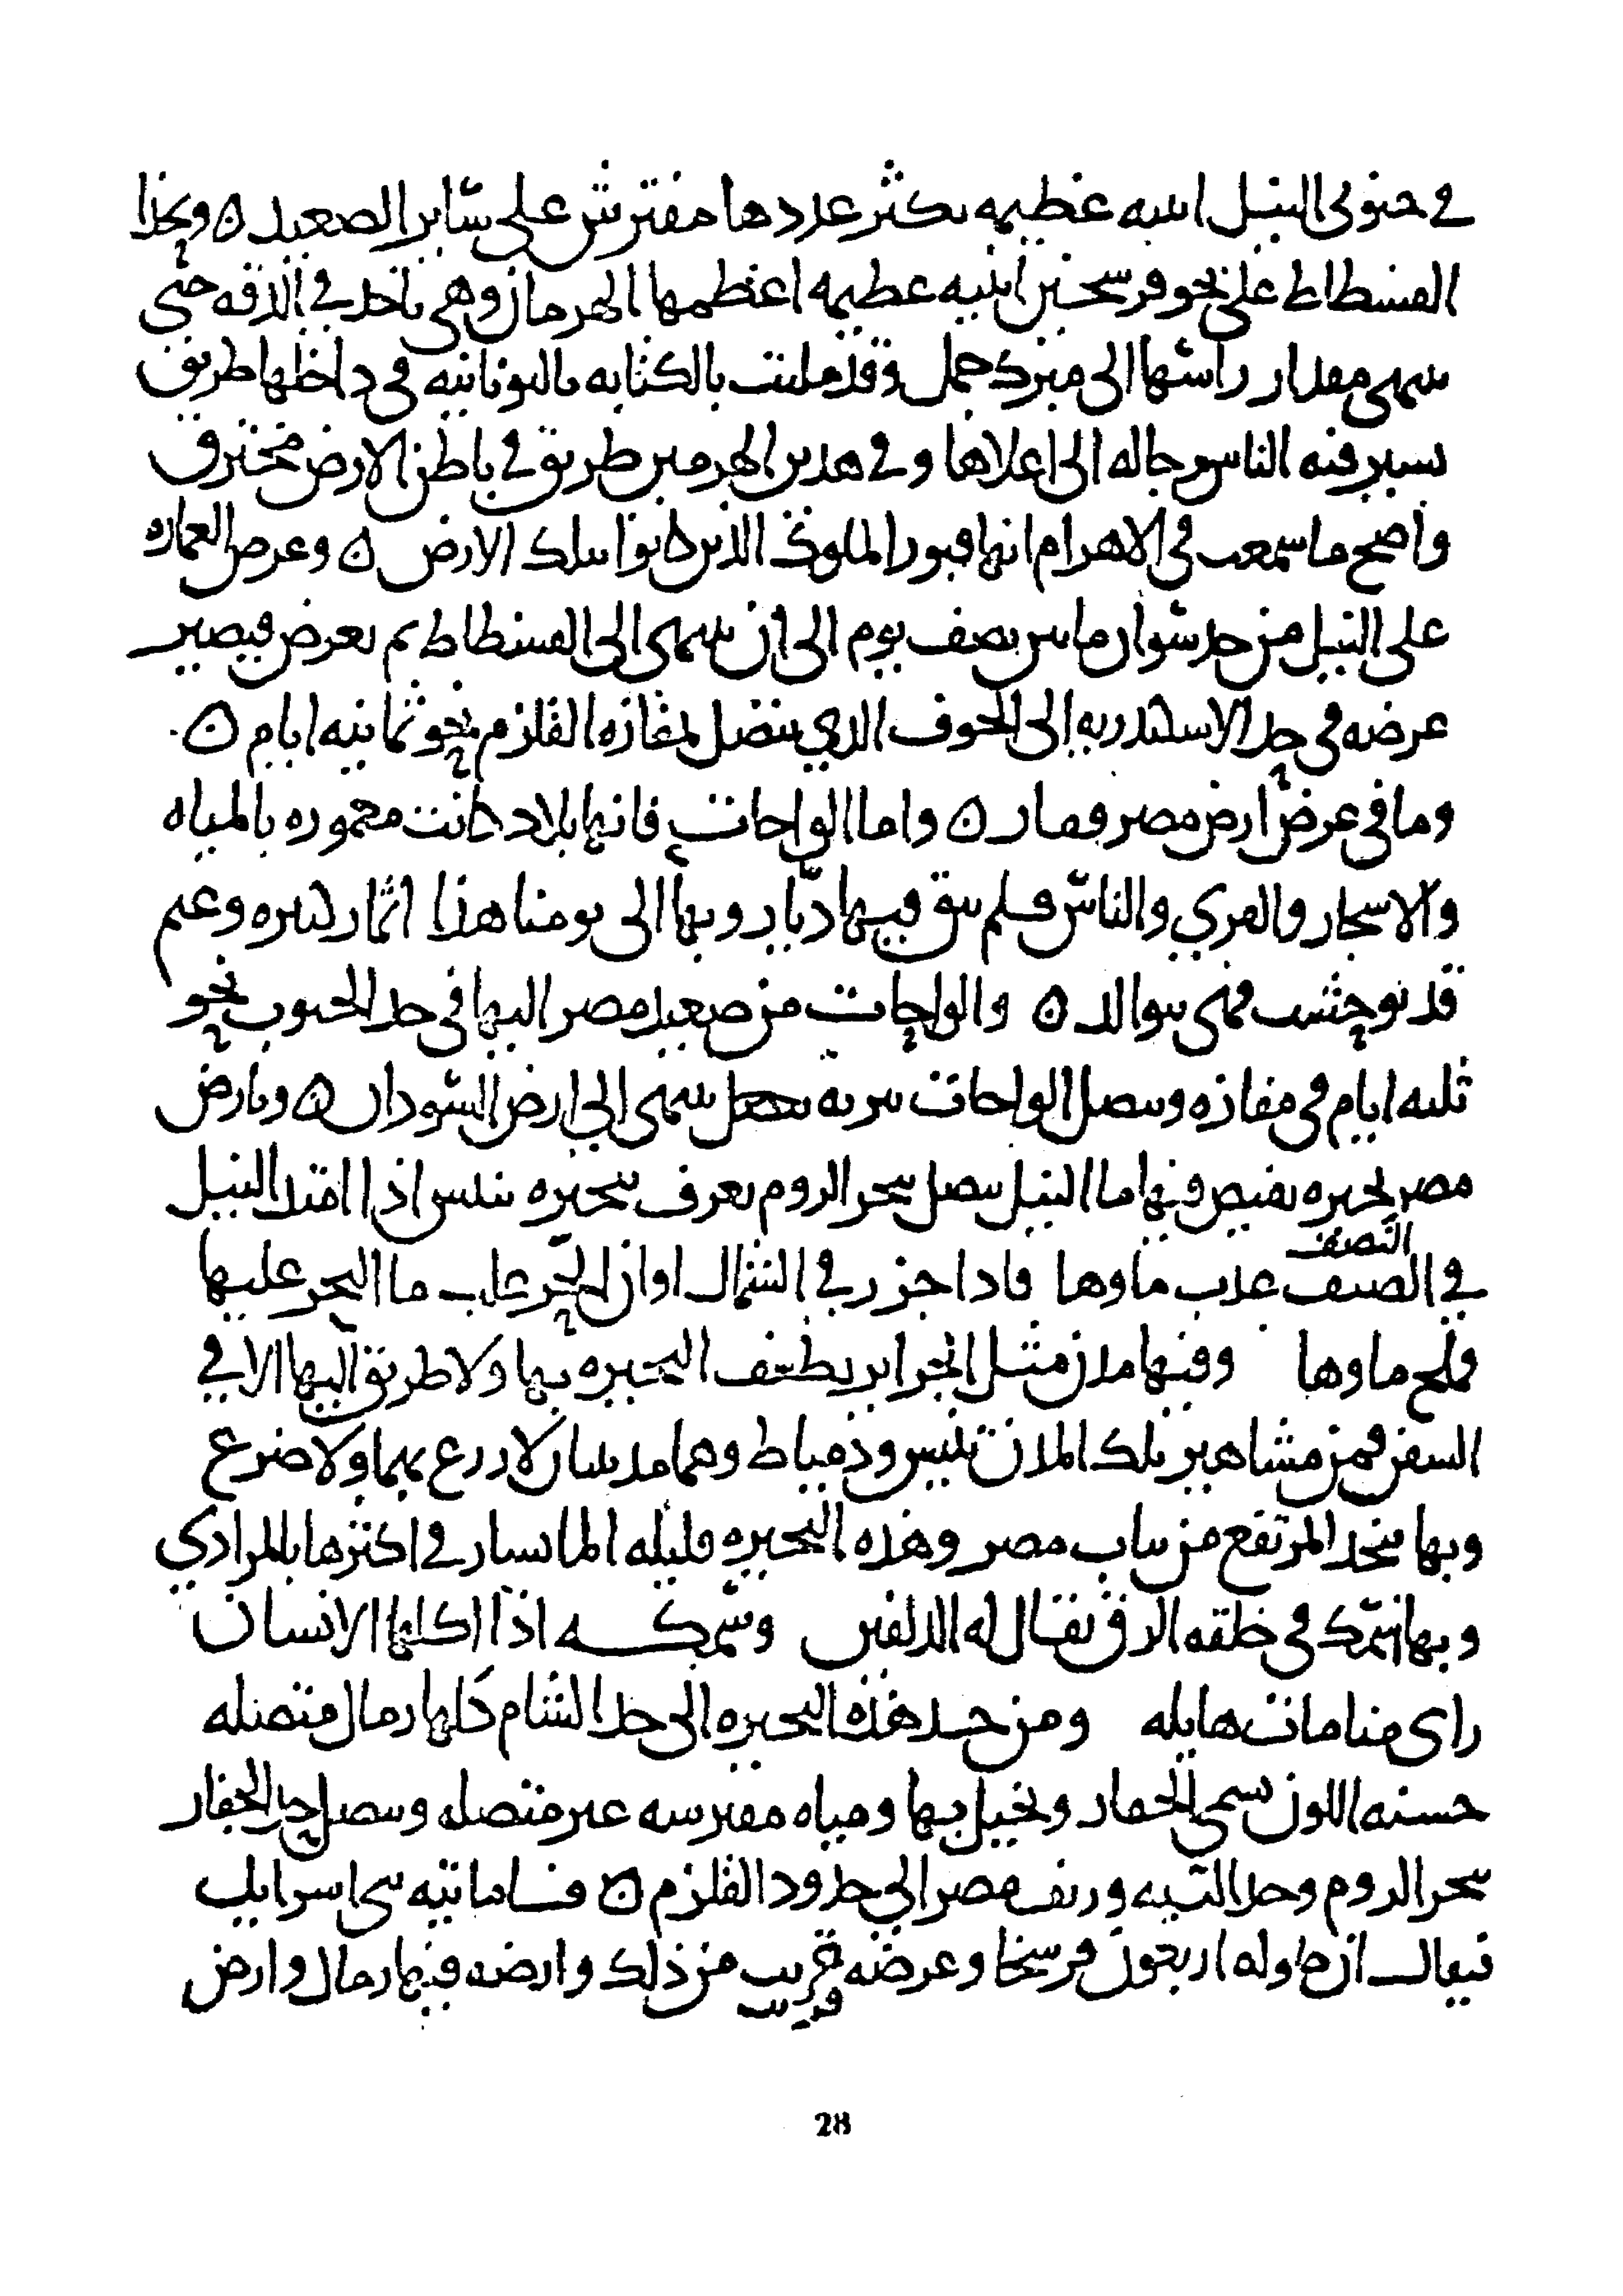 في جنوبي النيل ابنيه عظيمه يكثر عددها مفترش على سّاير الصعيد ه وبحذا
الفسطاط على نحو فرسخين ابنيه عظيمه اعظمها الهرمان وهي تاخذ في الدقه حتى
ينتهي مقدار راسّها الى مبرك جمل وقد مليت بالكتابه باليونانيه في داخلها طريق
يسير فيه الناس رجاله الى اعلاها وفي هذين الهرمين طريق في باطن الارض مخترق
واصح ما سمعت في الاهرام انها قبور الملوك الذين كانوا بتلك الارض ه وعرض العماره
على النيل من حد سّوان ما بين نصف يوم الى ان ينتهي الى الفسطاط ثم يعرض فيصير
عرضه في حد الاسكندريه الى الحوف الذي يتصل لمفازه القلزم نحو ثمانيه ايام ه
وما في عرض ارض مصر وقفار ه واما الواحات فانها بلاد كانت معموره بالمياه
والاشجار والقري والناسّ فلم يبق فيها ديّار وبها الى يومنا هذا اثمار كثيره وغنم
قد توحشت فهي تتوالد ه والواحات من صعيد مصر اليها في حد الجنوب نحو
ثلثه ايام في مفازه ويتصل الواحات ببريه ينتهي الى ارض السّودان ه وبارض
مصر بحيره يفيض فيها ما النيل يتصل ببحر الروم يعرف ببحيره تنيس اذا امتد النيل
الصيف
في الصيف عذب ماوها فاذا جزر في الشتا الى اوان الحرّ غلب ما البحر عليها
فملح ماوها وفيها مدن مثل الجزاير يطيف البحيره بها ولا طريق اليها الا في
السفن فمن مشاهير تلك المدن تنيس ودمياط وهما مدينتان لا زرع بهما ولا ضرع
وبها يتخذ المرتفع من ثياب مصر وهذه البحيره قليله الما يسار في اكثرها بالمرادي
وبها سّمك في خلقه الزق يقال له الدلفين وسّمكه اذا اكلها الانسان
راى منامات هايله ومن حد هذه البحيره الى حد الشام كلها رمال متصله
حسنه اللون يسمى الجفار ونخيل بها ومياه مفترشه غير متصله ويتصل حد الجفار
ببحر الروم وحد التيه وريف مصر الى حدود القلزم ه فاما تيه بني اسرايل
فيقال ان طوله اربعون فرسخا وعرضه قريب من ذلك وارضه فيها رمال وارض
قريب
28